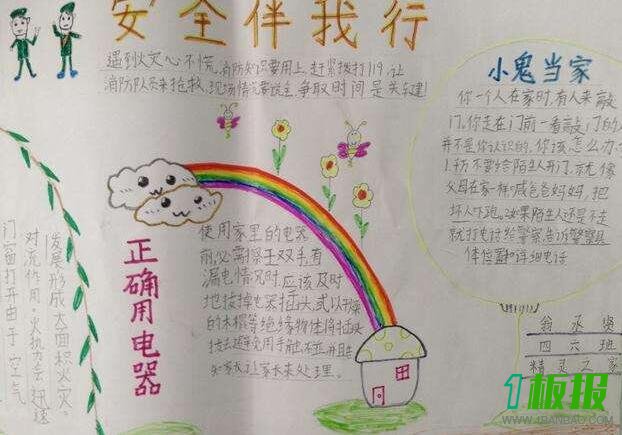 安全伴我行
遇到火灾心不慌,消防知识要用上,赶紧拨打119,让
消防队员来抢救,现场情况要说全,争取时间是关键!
小鬼当家
你一个人在家时,有人来敲
门,你走在门前一看敲门的人
并不是你认识的,你该怎么办
1.千万不要给陌生人开门,就像
父母在家一样喊爸爸妈妈,把
坏人吓跑。如果陌生人还是不走
就打电话给警察,告诉警察具
体位置和详细电话
正确用电器
使用家里的电器
前,必需擦干双手,有
漏电情况时,应该及时
地拔掉电器插头,或以干燥
的木棍等绝缘物体将插头
家长来处理。
门窗打开,由于空气
对流作用,火势会迅速
发展形成大面积火灾。
翁丞贤
四六班
精灵之家
1板报
WWW.1BANBAO.COM